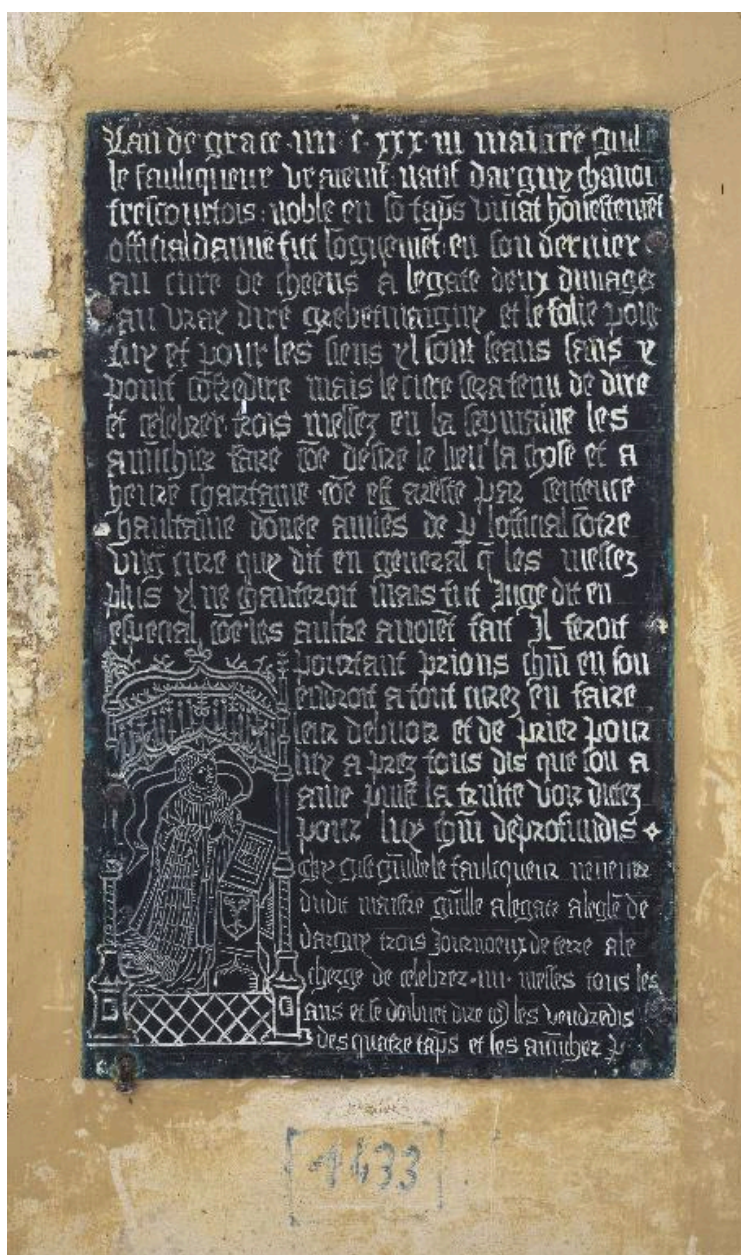 Lan de grace iiii c xxx iii maistre guille
le faulcqueur vraiemt natif darguy chanoi
trescourtois noble en sō tāps vivāt hōnestemēt
official damiē fut lōguemēt en son dernier
au cure de cheens a legate deux dimages
au vray dire grebetmaiguy et le folie poir
luy et pour les siens yl sont seans sans y
point cōtredire mais le cure sera tenu de dire
et celebrer trois messez en la sepmaine les
anuchier faire cōe desire le lieu la chose et a
heure chartaine cōe est areste par sentence
haultaine dōnee amiēs de p lofficial cōtre
ung cure quy dit en general q̄ les messez
plus yl ne chanteroit mais fut Juge dit en
especial cōe les aultre avoiēt fait Il feroit
pourtant prions chūn en son
endroit a tout curez en faire
leur debvoir et de prier pour
luy a prez tous dis que son a
ame puist la trinite voir dictez
pour luy chūn deprofundis
Chy gist guille le faulcqueur nepveur
dudit maistre guille a legate a legle de
darguy trois Journoeux de terre a le
cherge de celebrer iiii messes tous les
ans et se doibvēt dire les vendredis
des quatre tāps et les anucher p
1433